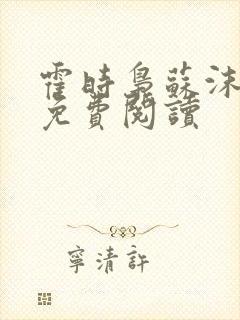 霍時梟蘇沫
免費閱讀
寧清許